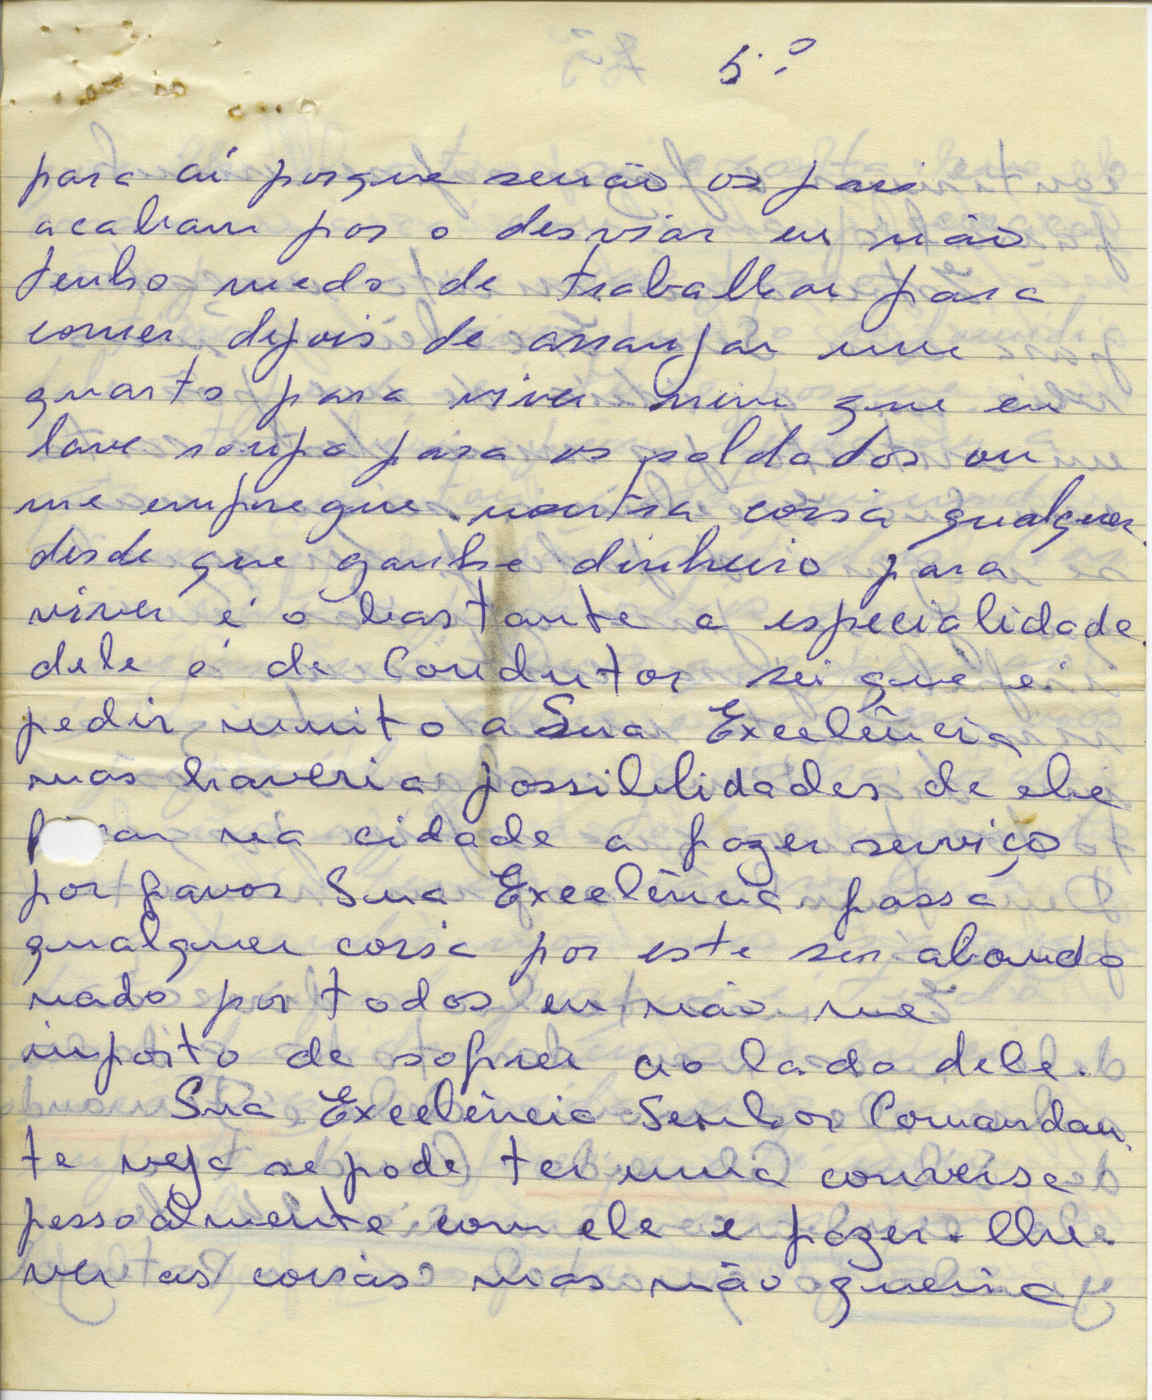 5.º
para aí porque senão os pais
acabam por o desviar eu não
tenho medo de trabalhar para
comer depois de arranjar um
quarto para viver nem que eu
lave roupa para os soldados ou
me empregue noutra coisa qualquer
desde que ganhe dinheiro para
viver é o bastante a especialidade
dele é de Condutor sei que é
pedir muito a Sua Excelência
mas haveria possibilidades de ele
na cidade a fazer serviço
por favor Sua Excelência fassa
qualquer coisa por este ser abando
nado por todos eu não me
inporto de sofrer ao lado dele.
Sua Excelência Senhor Comandan
te veja se pode ter uma conversa
pessoalmente com ele e fazer-lhe
ver as coisas mas não queria